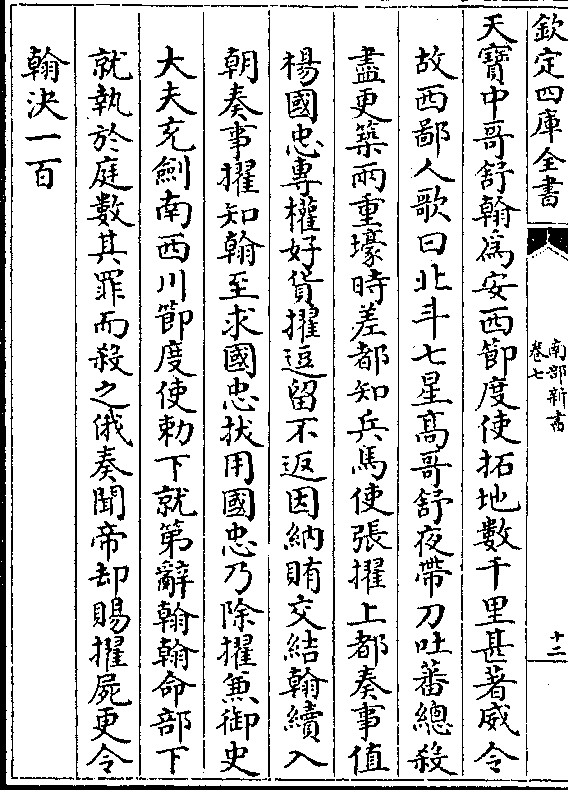 欽定四庫全書
南部新書
卷七
十二
天寶中哥舒翰爲安西節度使拓地數千里甚著威令
故西鄙人歌曰北斗七星髙哥舒夜帶刀吐蕃總殺
盡更築兩重壕時差都知兵馬使張擢上都奏事值
楊國忠專權好貨擢逗留不返因納賄交結翰續入
朝奏事擢知翰至求國忠拔用國忠乃除擢兼御史
大夫充劍南西川節度使勅下就第辭翰翰命部下
就執於庭數其罪而殺之俄奏聞帝却賜擢屍更令
翰決一百